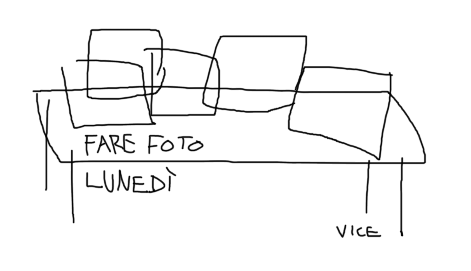 FARE FOTO
LUNEDÌ
VICE